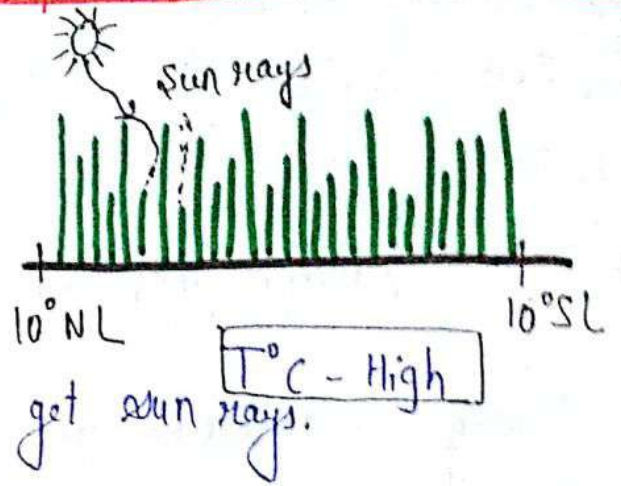 Sun rays
10° NL
10° SL
T°C - High
get sun rays.